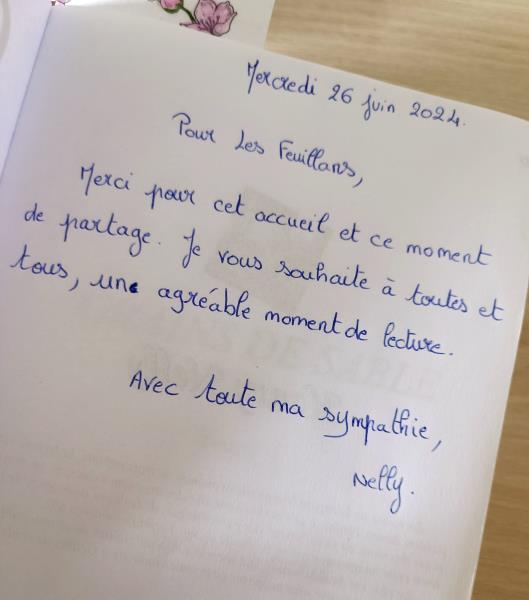 Mercredi 26 juin 2024.
Pour Les Feuillans,
Merci pour cet accueil et ce moment
de partage. Je vous souhaite à toutes et
tous, une agréable moment de lecture.
Avec toute ma sympathie,
Nelly.